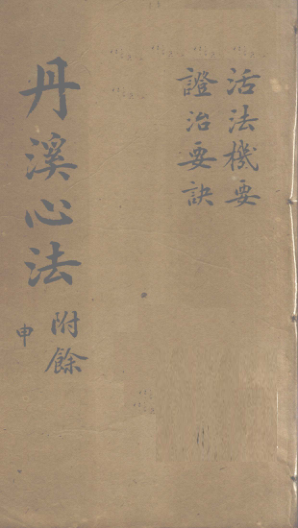 活法機要
證治要訣
丹溪心法
附餘
申